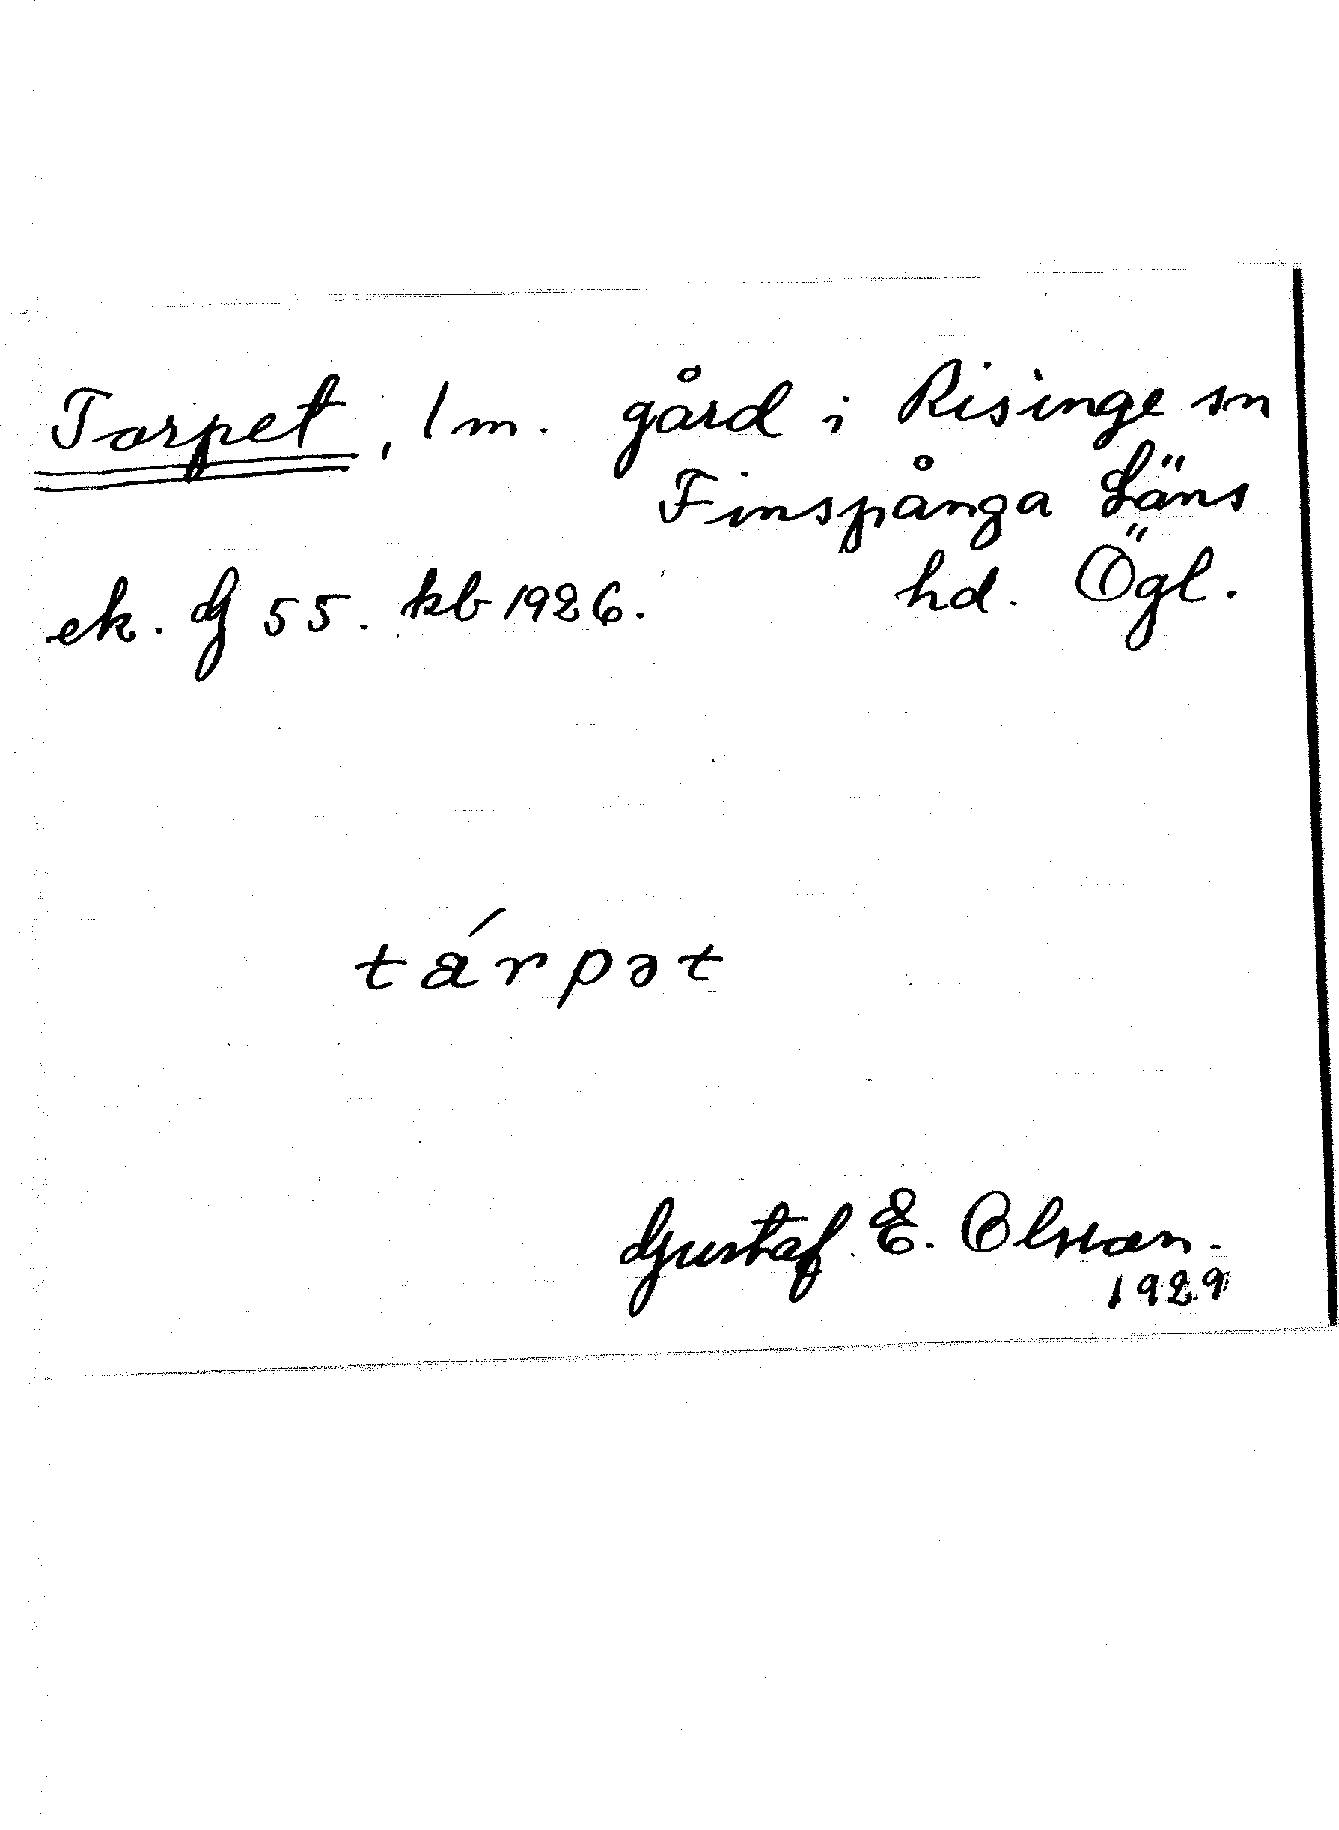 Torpet, 1 m. gård i Risinge sn
Finspånga Läns
ek. G 55. kb 1926. hd. Ögl.
tárpət
Gustaf E. Olsson.
1929